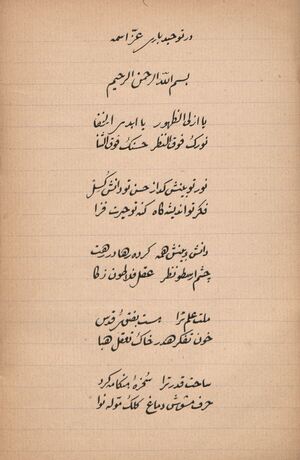 در توحید باری عزّ اسمه
بسم الله الرحمن الرحیم
یا ازلیّ الظهور یا ابدیّ الخفا
نورک فوق النظر حسنک فوق الثنا
نور تو بینش گداز حسن تو دانش گسل
فکر تو اندیشه کاه کنه تو حیرت فزا
دانش و بینش همه کرده رها در رهت
چشم ارسطو نظر عقل فلاطون ذکا
ملت علم ترا هست بفتوی قدس
خون تفکر هدر خاک تعقل هبا
ساحت قدر ترا سخره هنگامه کرد
حرف مشوش دماغ کلک متوله نوا